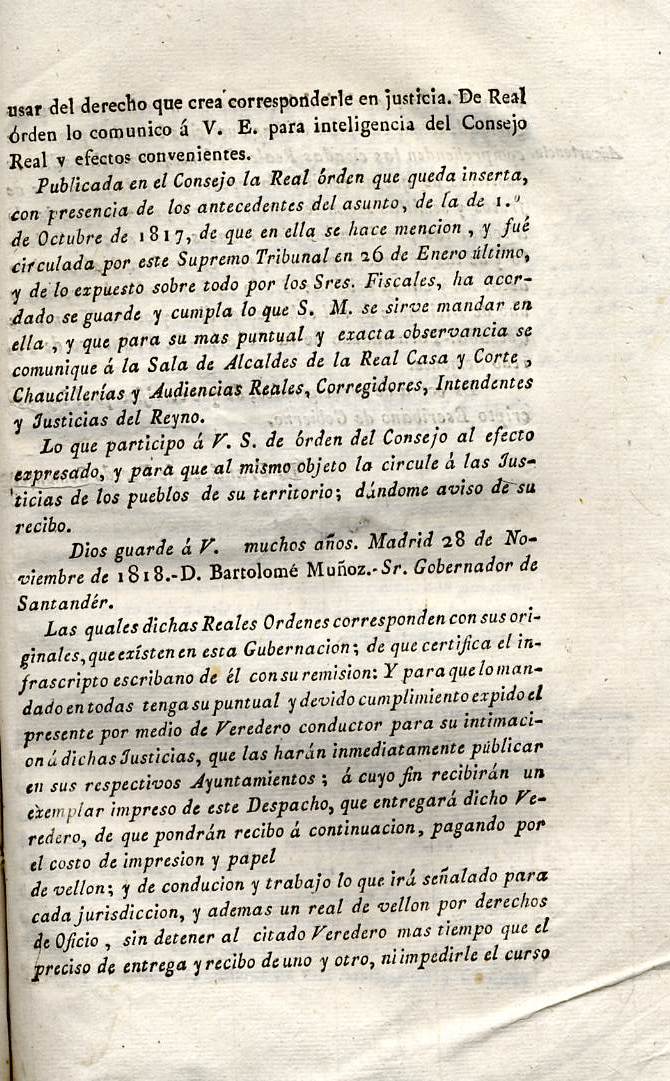 usar del derecho que crea corresponderle en justicia. De Real
órden lo comunico á V. E. para inteligencia del Consejo
Real y efectos convenientes.
Publicada en el Consejo la Real órden que queda inserta,
con presencia de los antecedentes del asunto, de la de 1.º
de Octubre de 1817, de que en ella se hace mencion, y fué
circulada por este Supremo Tribunal en 26 de Enero último,
y de lo expuesto sobre todo por los Sres. Fiscales, ha acor-
dado se guarde y cumpla lo que S. M. se sirve mandar en
ella, y que para su mas puntual y exacta observancia se
comunique á la Sala de Alcaldes de la Real Casa y Corte,
Chaucillerías y Audiencias Reales, Corregidores, Intendentes
y Justicias del Reyno.
Lo que participo á V. S. de órden del Consejo al efecto
expresado, y para que al mismo objeto la circule á las Jus-
ticias de los pueblos de su territorio; dándome aviso de su
recibo.
Dios guarde á V. muchos años. Madrid 28 de No-
viembre de 1818.-D. Bartolomé Muñoz.-Sr. Gobernador de
Santandér.
Las quales dichas Reales Ordenes corresponden con sus ori-
ginales, que exîsten en esta Gubernacion; de que certifica el in-
frascripto escribano de él con su remision: Y para que lo man-
dado en todas tenga su puntual y devido cumplimiento expido el
presente por medio de Veredero conductor para su intimaci-
on á dichas Justicias, que las harán inmediatamente públicar
en sus respectivos Ayuntamientos; á cuyo fin recibirán un
exemplar impreso de este Despacho, que entregará dicho Ve-
redero, de que pondrán recibo á continuacion, pagando por
el costo de impresion y papel
de vellon; y de conducion y trabajo lo que irá señalado para
cada jurisdiccion, y ademas un real de vellon por derechos
de Oficio, sin detener al citado Veredero mas tiempo que el
preciso de entrega y recibo de uno y otro, ni impedirle el curso